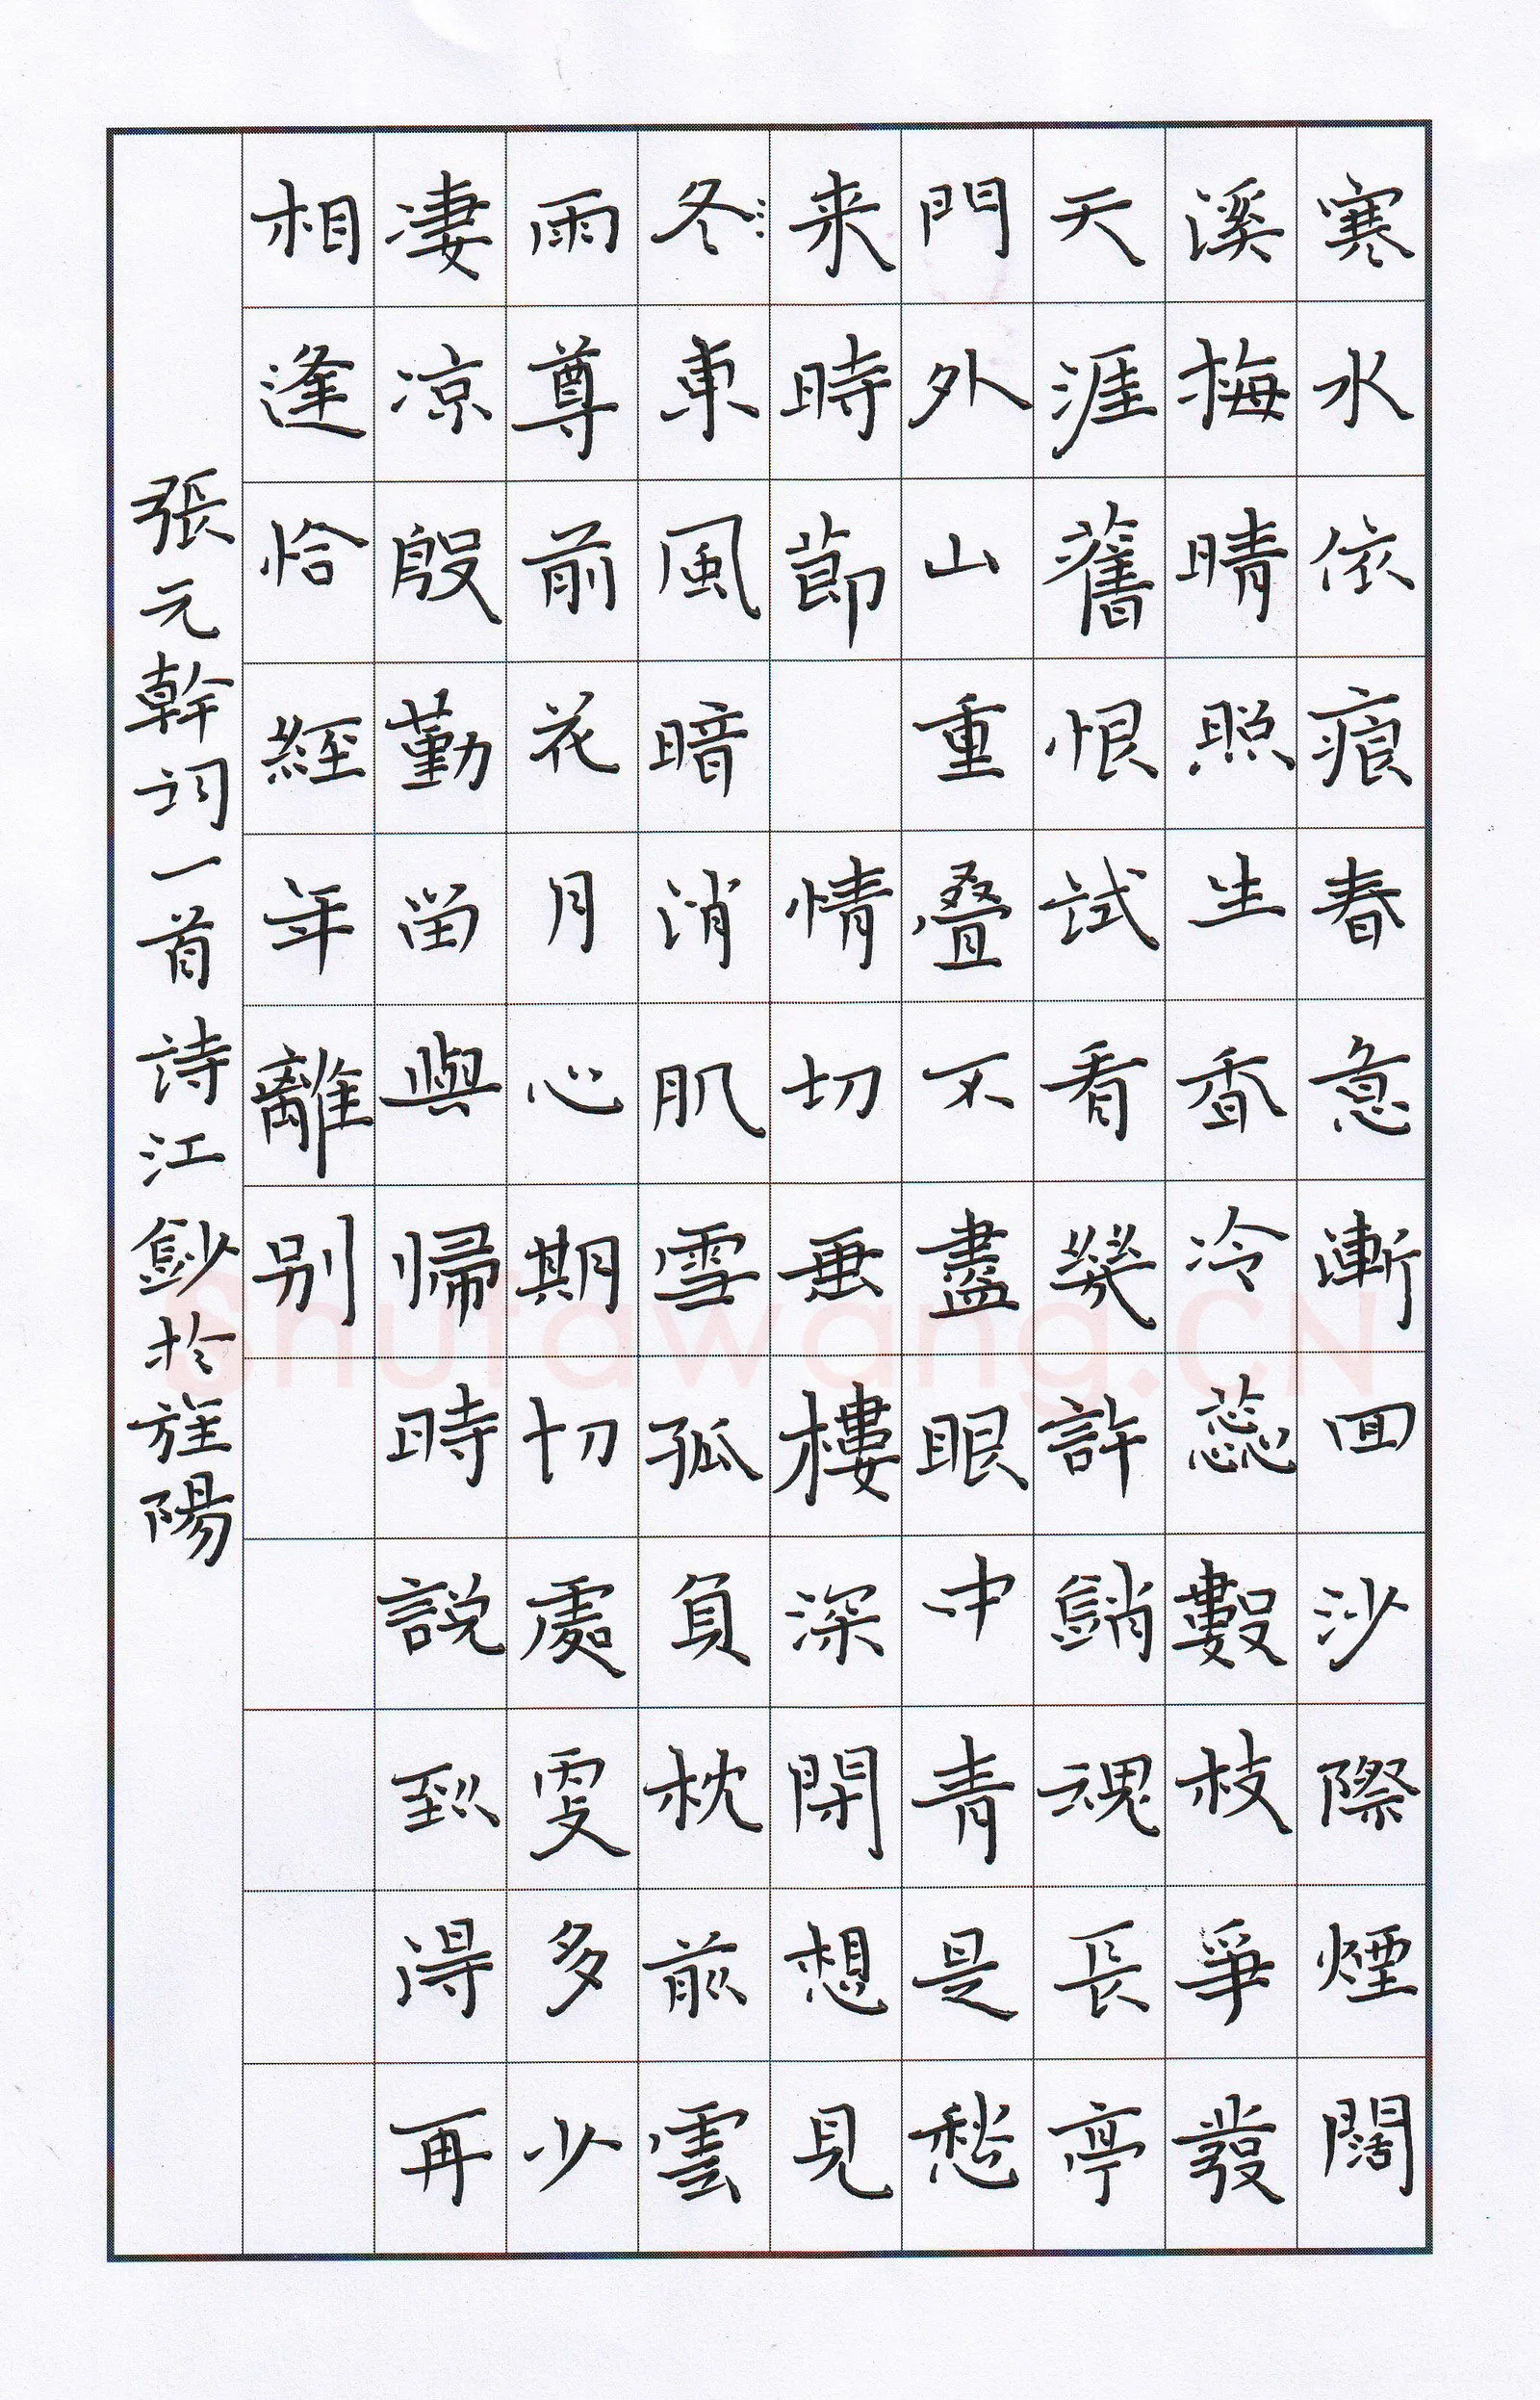 寒水依痕春意漸回沙際煙闊
溪梅晴照生香冷蕊數枝爭發
天涯舊恨試看幾許銷魂長亭
門外山重疊不盡眼中青是愁
来時節 情切画樓深閉想見
東風暗消肌雪孤負枕前雲
雨尊前花月心期切處更多少
凄凉殷勤留與歸時說到得再
相逢恰經年離別
張元幹詞一首 詩江鈔於旌陽
Shufawang.CN